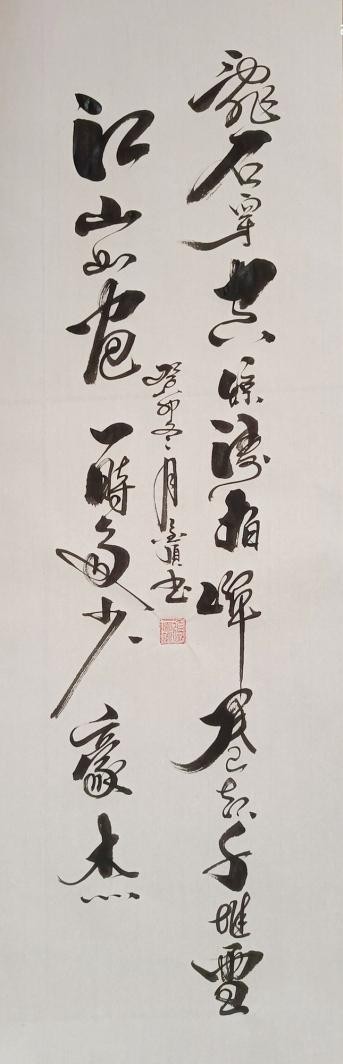 亂石穿空惊濤拍岸卷起千堆雪
江山如画一時多少豪杰
癸卯冬月书